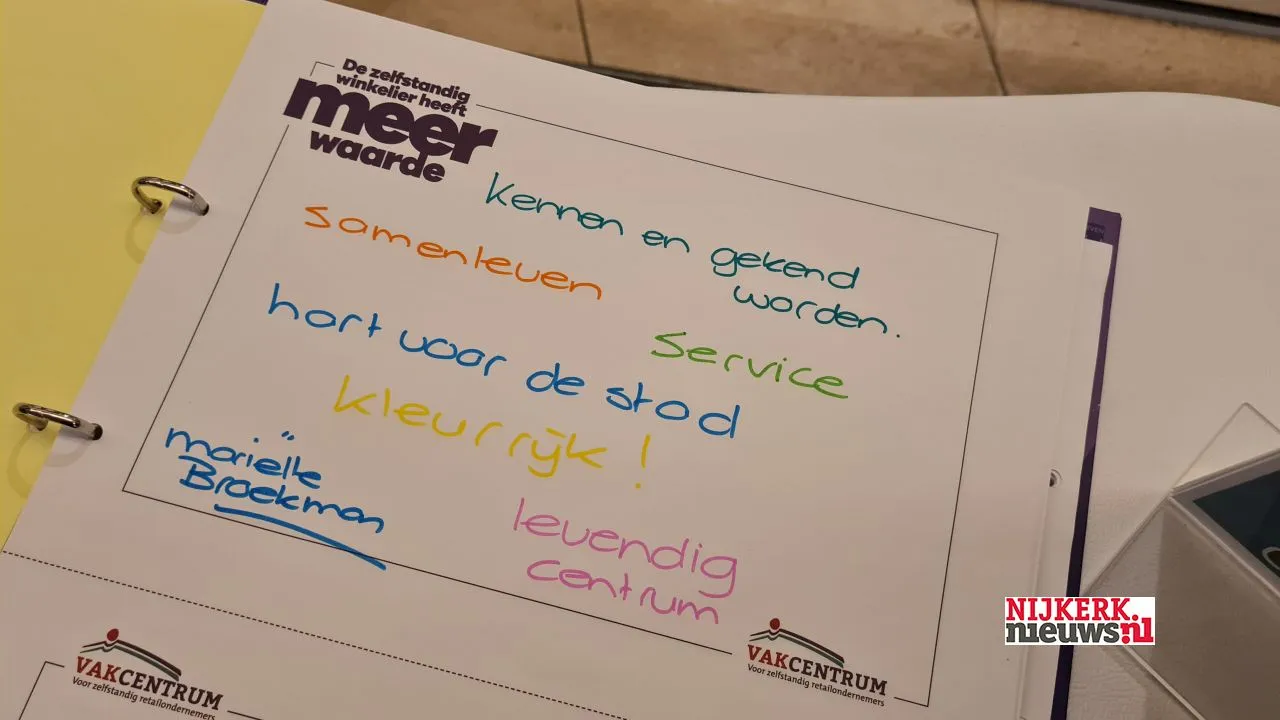 De zelfstandig
winkelier heeft
meer
waarde
Kennen en gekend
worden.
samenleven
Service
hart voor de stad
kleurrijk!
mariëlle
Broekman
levendig
centrum
VAKCENTRUM
Voor zelfstandig retailondernemers
VAKCENTRUM
Voor zelfstandig retailondernemers
NIJKERK
nieuws.nl